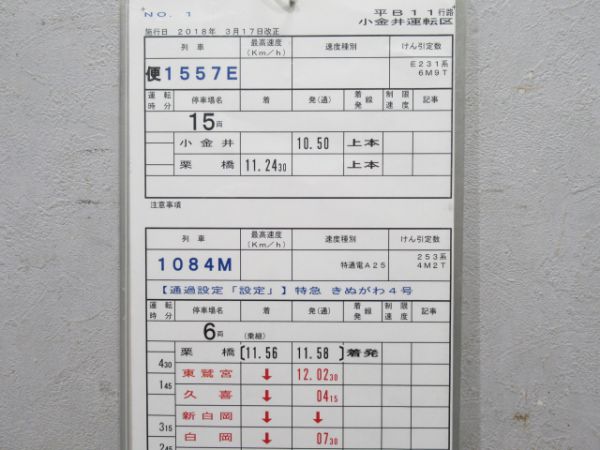 NO. 1 平B11行路
施行日 2018年 3月17日改正 小金井運転区
列車 最高速度(Km/h) 速度種別 けん引定数
便1557E E231系 6M9T
運転時分 停車場名 着 発(通) 着発線 制限速度 記事
15両
小金井 10.50 上本
栗橋 11.24 30 上本
注意事項
列車 最高速度(Km/h) 速度種別 けん引定数
1084M 特通電A25 253系 4M2T
【通過設定「設定」】特急 きぬがわ4号
運転時分 停車場名 着 発(通) 着発線 制限速度 記事
6両 (乗継)
栗橋 [11.56 11.58] 着発
4 30 東鷲宮 ↓ 12.02 30
1 45 久喜 ↓ 04 15
新白岡 ↓ ↓
3 15 白岡 ↓ 07 30
2 45